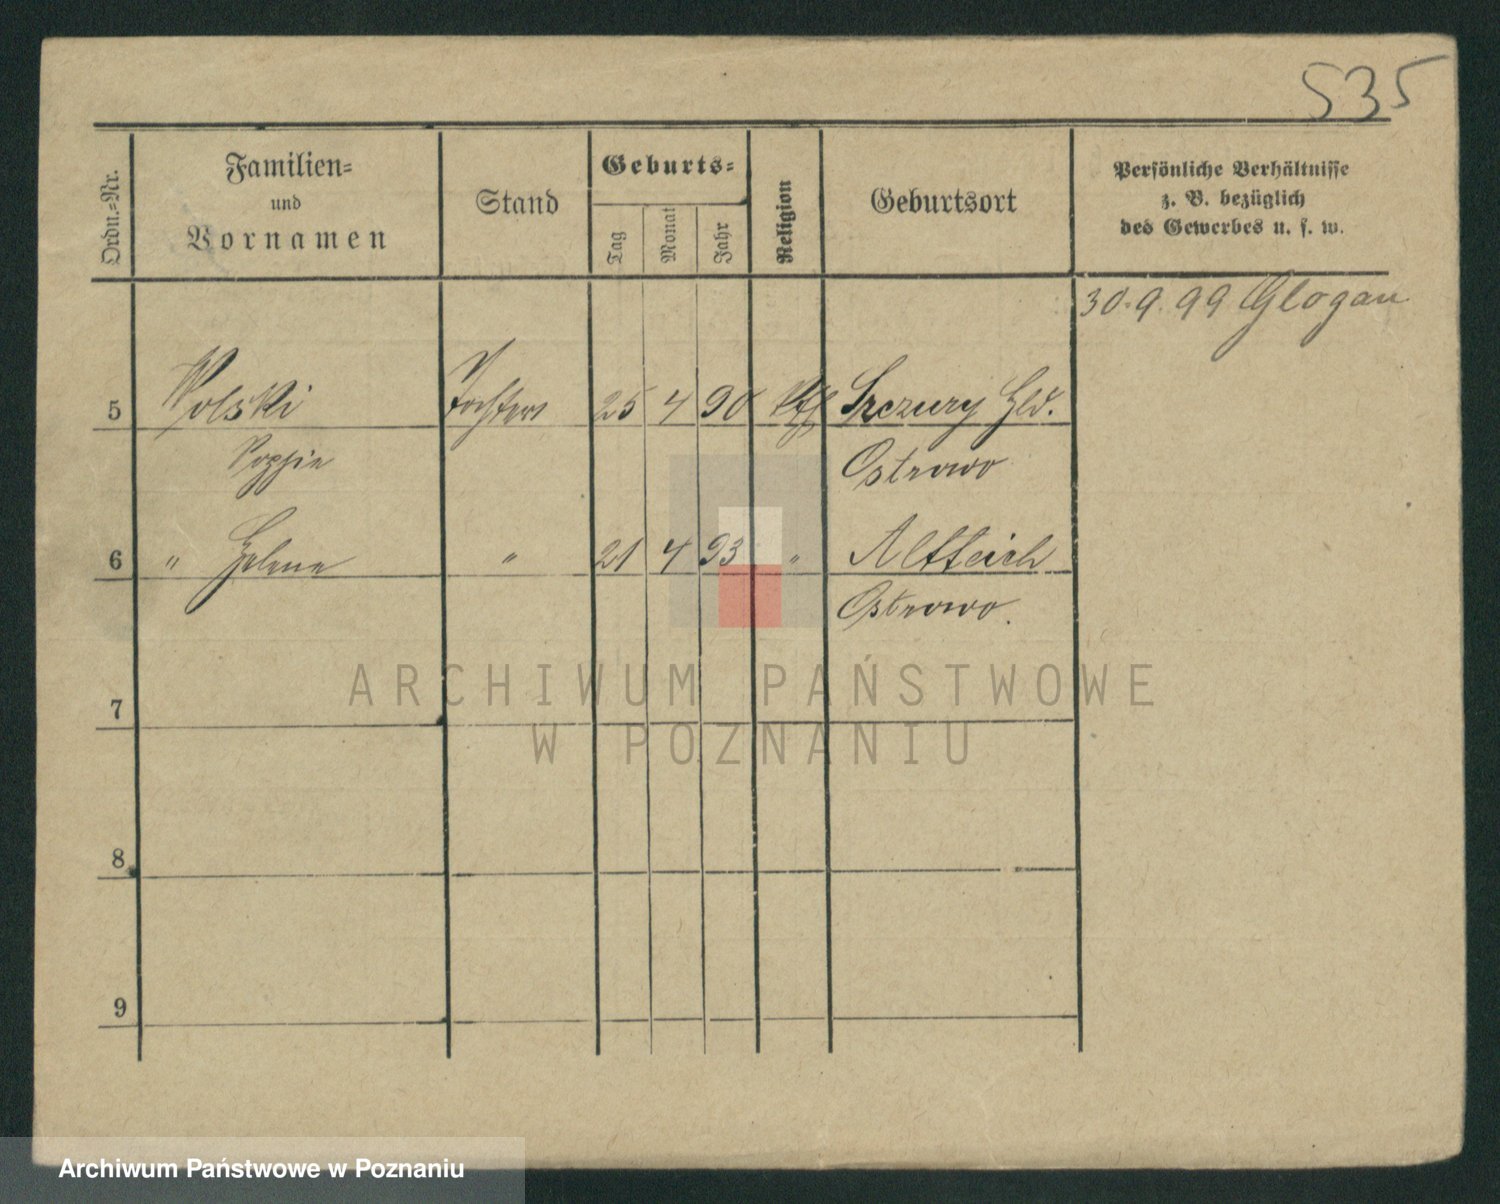 535
Ordn.=Nr.
Familien=
und
Vornamen
Stand
Geburts=
Tag
Monat
Jahr
Religion
Geburtsort
Persönliche Verhältnisse
z. B. bezüglich
des Gewerbes u. s. w.
30.9.99 Glogau
5 Polski Tochter 25 4 90 Szczury Hld.
Sophie Ostrowo
6 " Helene " 21 4 93 " Altteich
Ostrowo.
ARCHIWUM PAŃSTWOWE
W POZNANIU
7
8
9
Archiwum Państwowe w Poznaniu